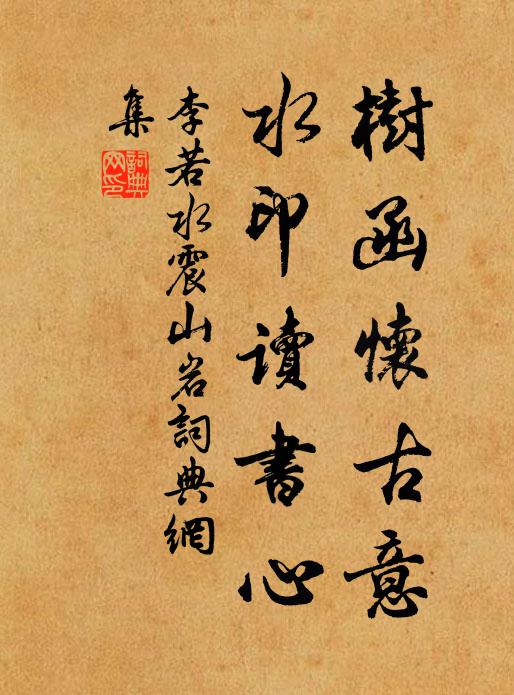 樹函懷古意
水印讀書心
李若水震山岩詞典網
集
詞典網印